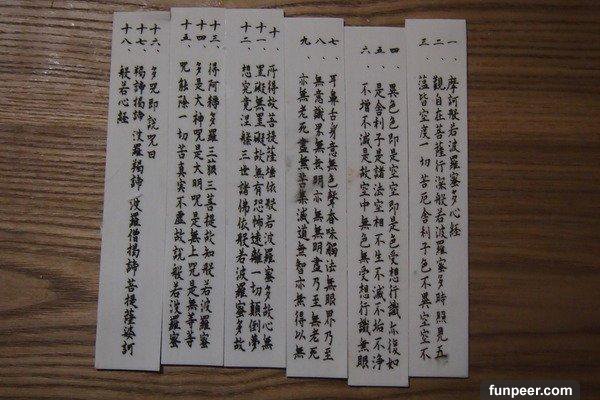 一、摩訶般若波羅蜜多心経
二、観自在菩薩行深般若波羅蜜多時照見五
三、蘊皆空度一切苦厄舎利子色不異空空不
四、異色色即是空空即是色受想行識亦復如
五、是舎利子是諸法空相不生不滅不垢不浄
六、不増不減是故空中無色無受想行識無眼
七、耳鼻舌身意無色聲香味觸法無眼界乃至
八、無意識界無無明亦無無明盡乃至無老死
九、亦無老死盡無苦集滅道無智亦無得以無
十、所得故菩提薩埵依般若波羅蜜多故心無
十一、罣礙無罣礙故無有恐怖遠離一切顛倒夢
十二、想究竟涅槃三世諸佛依般若波羅蜜多故
十三、得阿耨多羅三藐三菩提故知般若波羅蜜
十四、多是大神咒是大明咒是無上咒是無等等
十五、咒能除一切苦真実不虚故説般若波羅蜜
十六、多咒即説咒曰
十七、羯諦羯諦波羅羯諦波羅僧羯諦菩提薩婆訶
十八、般若心経
funpeer.com